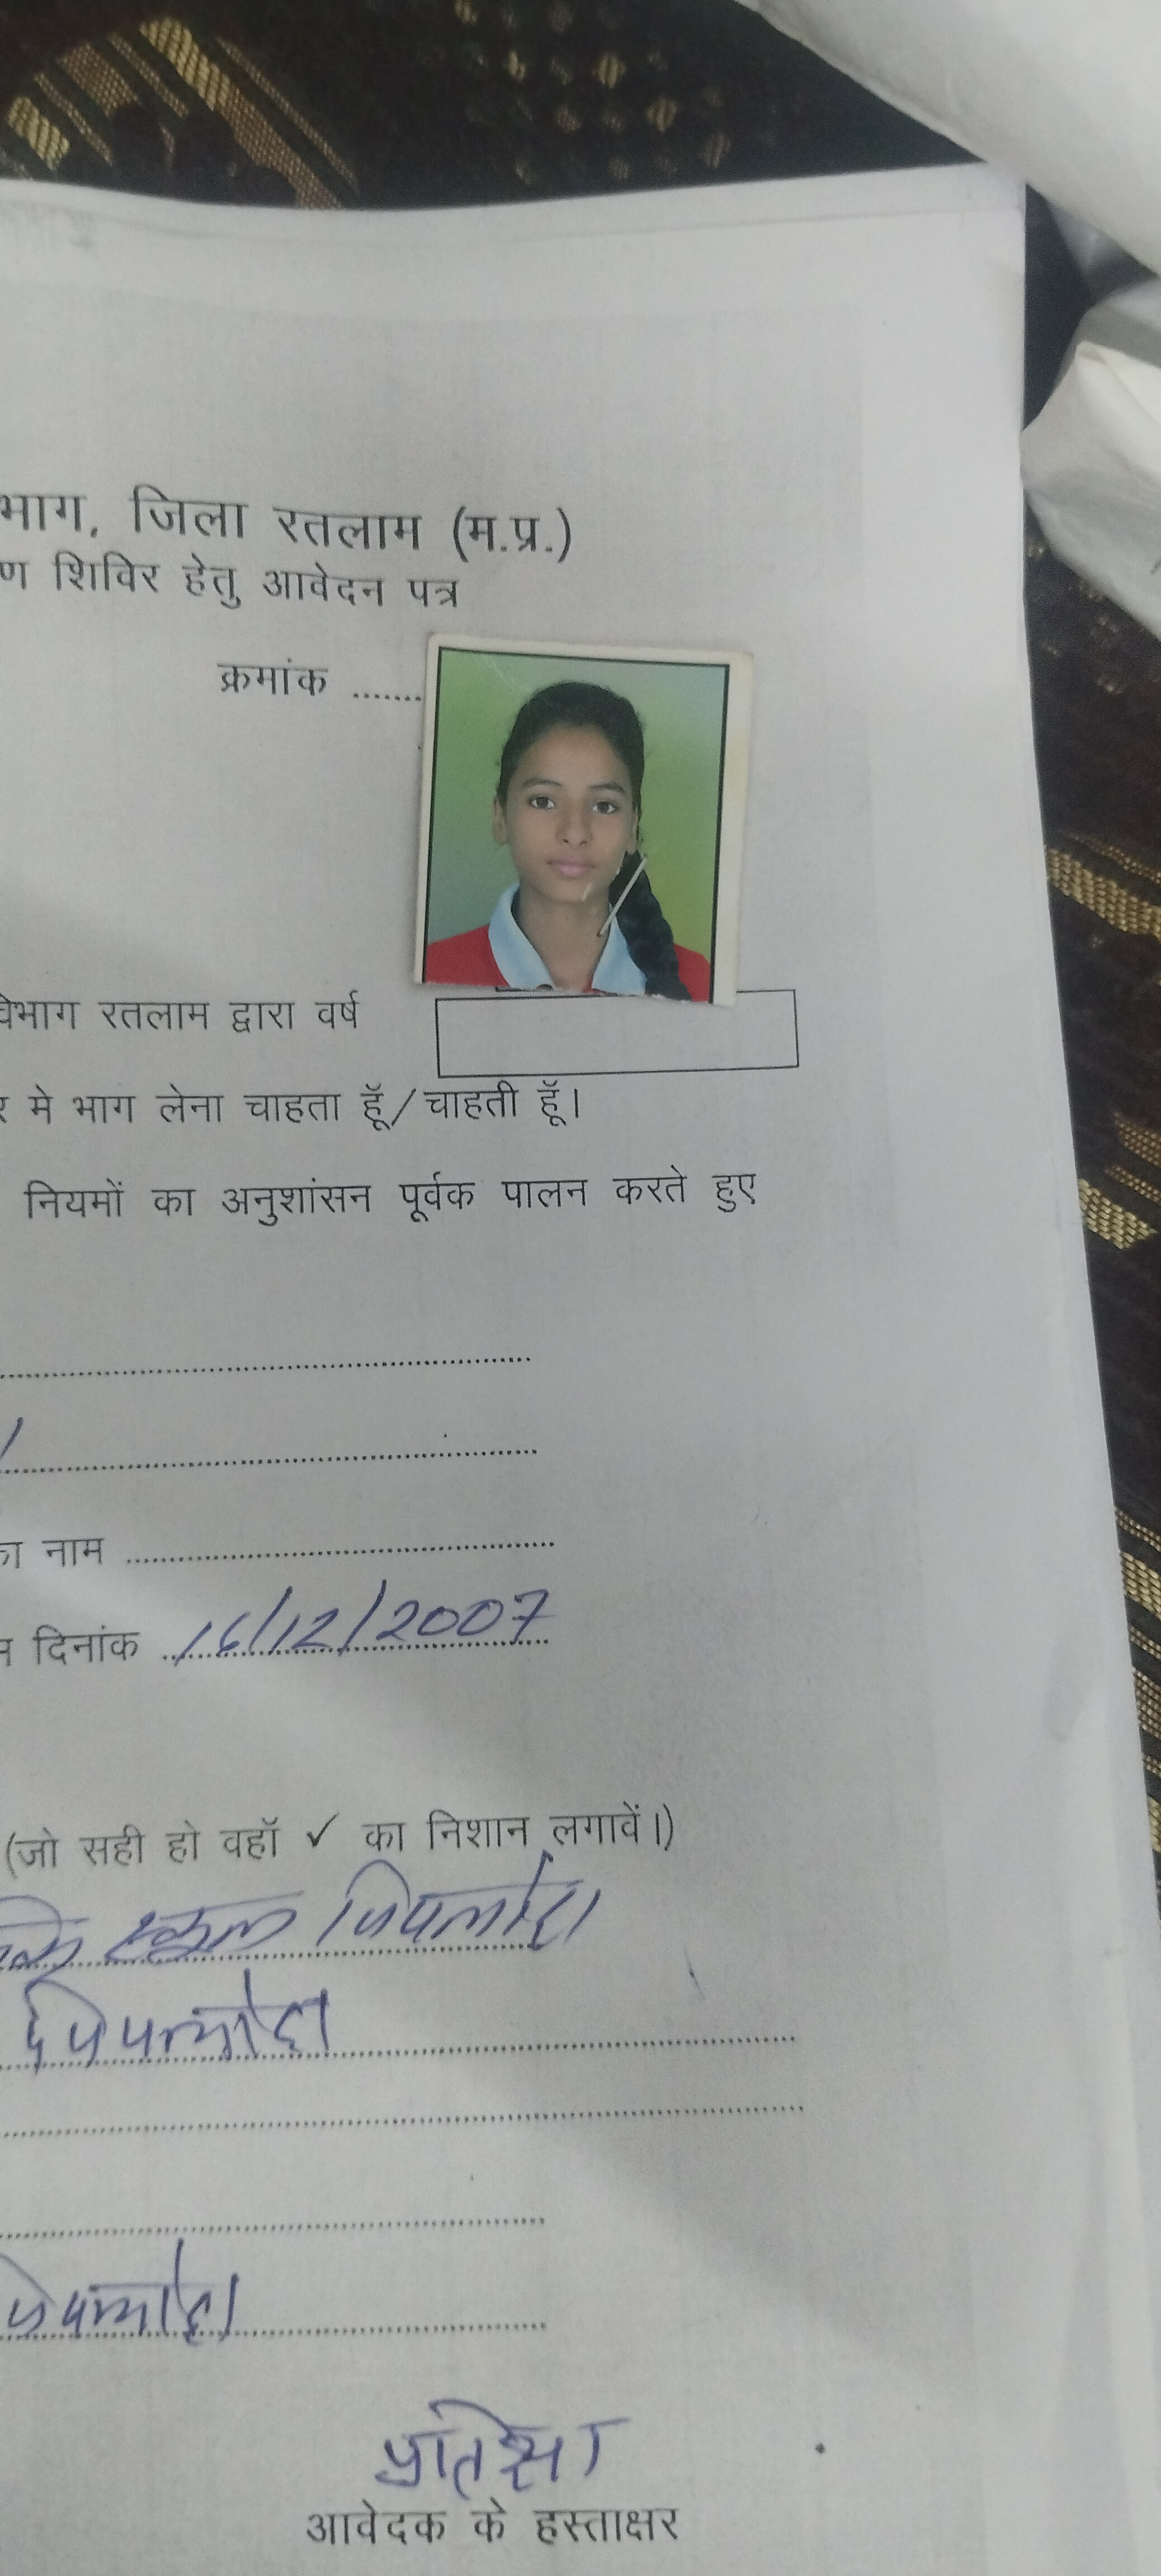 भाग, जिला रतलाम (म.प्र.)
ण शिविर हेतु आवेदन पत्र
क्रमांक .......
विभाग रतलाम द्वारा वर्ष
र मे भाग लेना चाहता हूँ/चाहती हूँ।
नियमों का अनुशांसन पूर्वक पालन करते हुए
का नाम
दिनांक 16/12/2007
(जो सही हो वहाॅ ✓ का निशान लगावें।)
स्कूल पिपलौदा
पिपलौदा
पिपलौदा
प्रतिक्षा
आवेदक के हस्ताक्षर